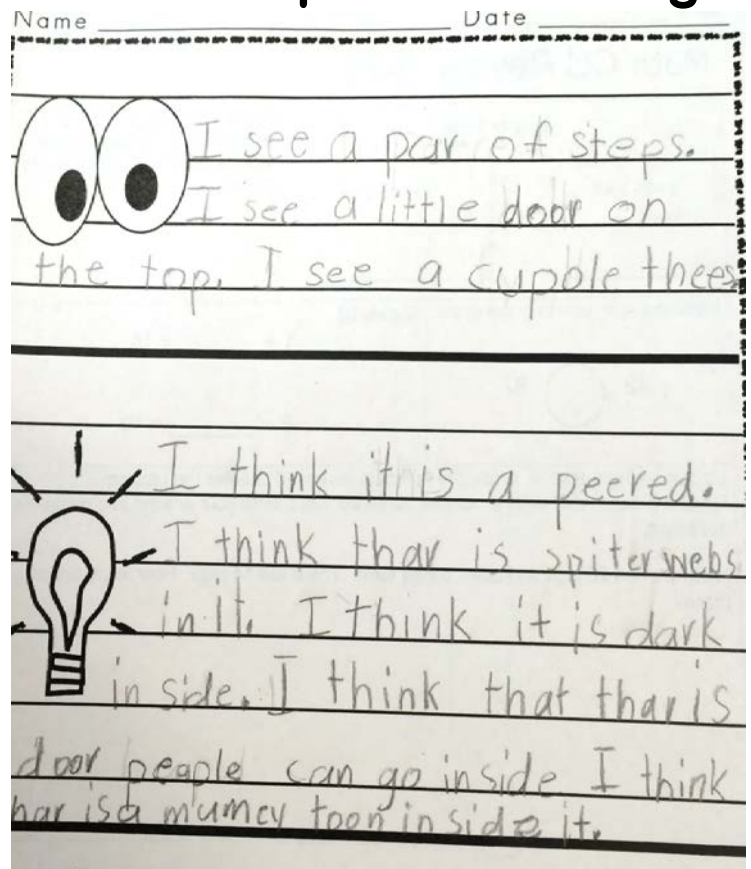 Name Date
I see a par of steps.
I see a little door on
the top. I see a cupble thees
I think ithis a peered.
I think thar is spiterwebs
in it. I think it is dark
in side. I think that thar is
door peaple can go inside I think
har is a mumey toon in side it.